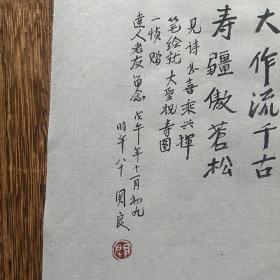 大作流千古
寿疆傲苍松
见诗甚喜乘兴挥
笔绘就大圣祝寿图
一帧赠
达人老友留念戊午年十一月初九
时年八十关良